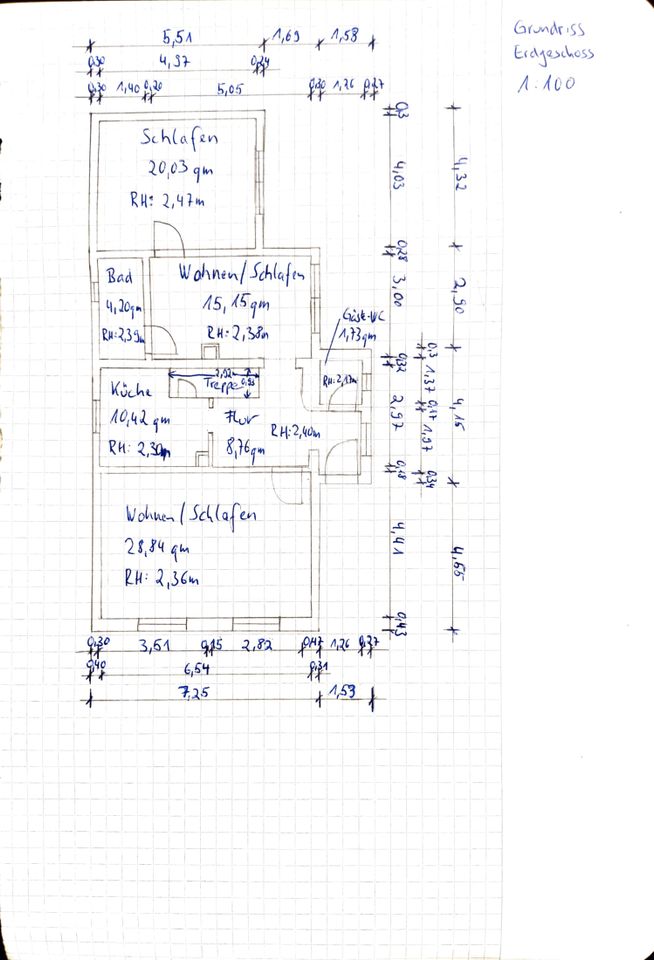 Grundriss
Erdgeschoss
1:100
5,51 1,69 1,58
0,30 4,97 0,24
0,30 1,40 0,20 5,05 0,30 1,26 0,27
Schlafen
20,03 qm
RH: 2,47m
Bad
4,20qm
RH: 2,39m
Wohnen/Schlafen
15,15qm
RH: 2,38m
Gäste-WC
1,73qm
RH: 2,13m
2,92m
Treppe 0,93
Küche
10,42 qm
RH: 2,30m
Flur
8,76qm
RH: 2,40m
Wohnen/Schlafen
28,84 qm
RH: 2,36m
0,3 4,03 0,28 3,00 0,32 2,97 0,18 4,41 0,43
0,3 1,37 0,17 1,97 0,34
4,32 2,90 4,15 4,65
0,30 3,51 0,15 2,82 0,47 1,26 0,27
0,40 6,54 0,31
7,25 1,53